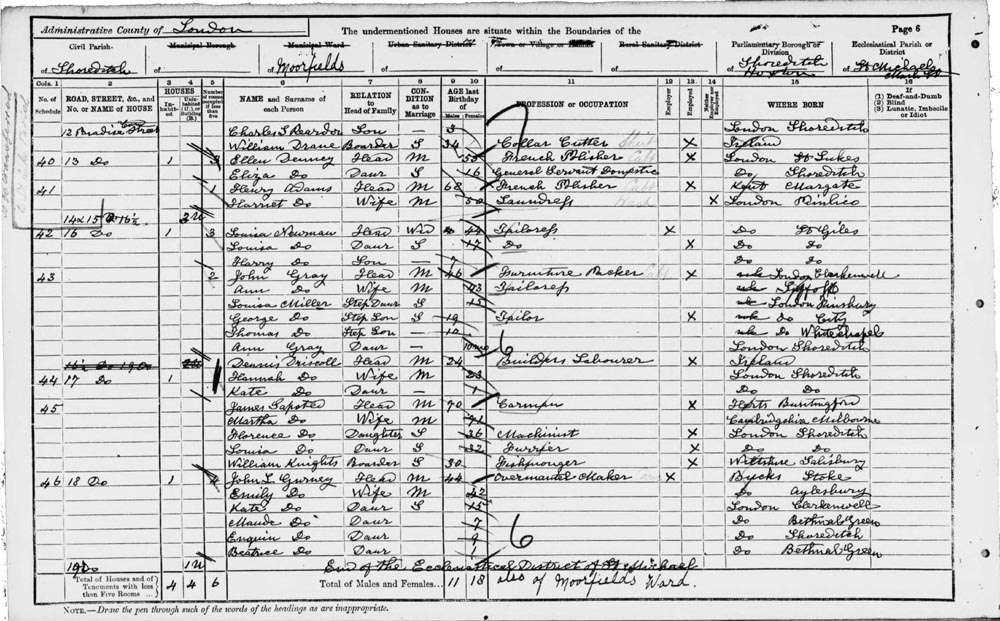 Administrative County of London
The undermentioned Houses are situate within the Boundaries of the
Page 6
Civil Parish of Shoreditch
Municipal Borough of
Municipal Ward of Moorfields
Urban Sanitary District of
Town or Village or Hamlet of
Rural Sanitary District of
Parliamentary Borough or Division of Shoreditch Hoxton
Ecclesiastical Parish or District of St Michaels Mark St
Cols. 1 2 3 4 5 6 7 8 9 10 11 12 13 14 15 16
No. of Schedule
ROAD, STREET, &c., and No. or NAME of HOUSE
HOUSES In-habit-ed Unin-habited (U.) or Building (B.)
Number of rooms occupied if less than five
NAME and Surname of each Person
RELATION to Head of Family
CON-DITION as to Marriage
AGE last Birthday of Males Females
PROFESSION or OCCUPATION
Employer
Employed
Neither Employer nor Employed
WHERE BORN
If (1) Deaf-and-Dumb (2) Blind (3) Lunatic, Imbecile or Idiot
12 Paradise Street Charles S Reardon Son — 3 London Shoreditch
William Drane Boarder S 34 Collar Cutter X Ireland
40 13 Do 1 3 Ellen Denney Head M 53 French Polisher X London St Lukes
Eliza Do Daur S 16 General Servant Domestic Do Shoreditch
41 1 Henry Adams Head M 68 French Polisher X Kent Margate
Harriet Do Wife M 50 Laundress X London Pimlico
14 & 15 Do 15½ 3 U
42 16 Do 1 3 Louisa Newman Head Wid 44 Tailoress X Do St Giles
Louisa Do Daur S 17 Do X Do Do
Harry Do Son — 7 Do Do
43 2 John Gray Head M 46 Furniture Packer X London Clerkenwell
Ann Do Wife M 43 Tailoress Suffolk
Louisa Miller Step Daur S 15 London Finsbury
George Do Step Son S 19 Tailor X Do City
Thomas Do Step Son — 10 Do Whitechapel
Ann Gray Daur — 10 mo London Shoreditch
Dennis Driscoll Head M 24 Builders Labourer X Ireland
44 17 Do 1 Hannah Do Wife M 23 London Shoreditch
Kate Do Daur 1 Do Do
45 James Sapsted Head M 70 Carman X Herts Buntingford
Martha Do Wife M 71 Cambridgshia Milbourne
Florence Do Daughter S 36 Machinist X London Shoreditch
Louisa Do Daur S 32 Furrier X Do Do
William Knights Boarder S 30 Fishmonger X Wiltshire Salisbury
46 18 Do 1 4 John L Gurney Head M 44 Overmantel Maker X Bucks Stoke
Emily Do Wife M 42 Do Aylesbury
Kate Do Daur S 15 London Clerkenwell
Maude Do Daur 7 Do Bethnal Green
Enquin Do Daur 9 Do Shoreditch
Beatrice Do Daur 1 Do Bethnal Green
19 Do 1 U End of the Ecclesiastical District of St Michael
also of Moorfields Ward.
Total of Houses and of Tenements with less than Five Rooms ... 4 4 6
Total of Males and Females... 11 18
NOTE.—Draw the pen through such of the words of the headings as are inappropriate.